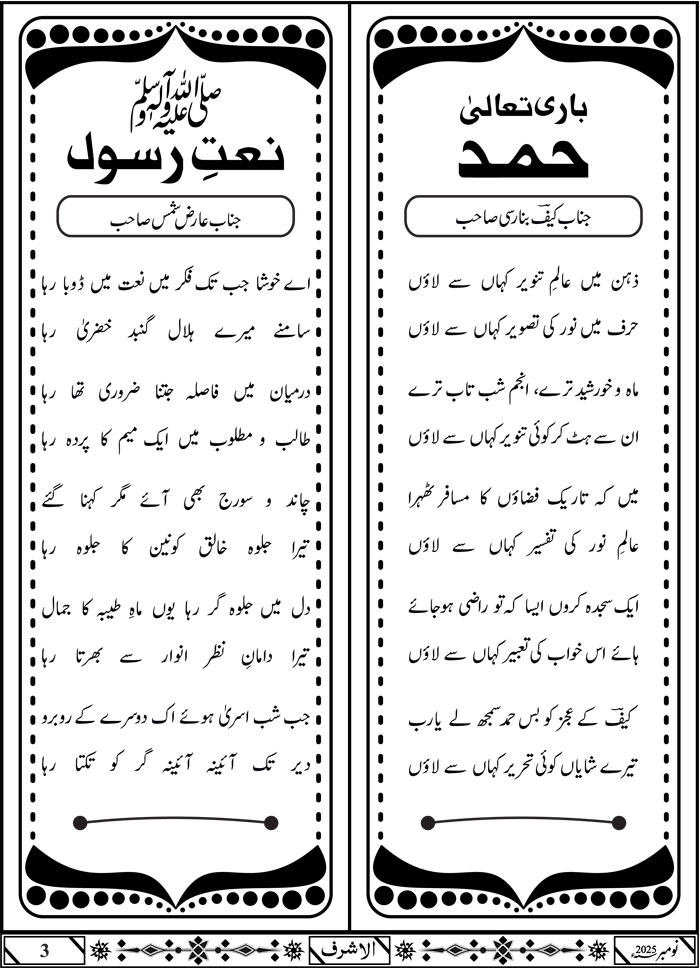 باری تعالیٰ
حمد
جناب کیفؔ بنارسی صاحب
ذہن میں عالمِ تنویر کہاں سے لاؤں
حرف میں نور کی تصویر کہاں سے لاؤں
ماہ و خورشید ترے، انجم شب تاب ترے
ان سے ہٹ کر کوئی تنویر کہاں سے لاؤں
میں کہ تاریک فضاؤں کا مسافر ٹھہرا
عالمِ نور کی تفسیر کہاں سے لاؤں
ایک سجدہ کروں ایسا کہ تو راضی ہوجائے
ہائے اس خواب کی تعبیر کہاں سے لاؤں
کیفؔ کے عجز کو بس حمد سمجھ لے یارب
تیرے شایاں کوئی تحریر کہاں سے لاؤں
صلی اللہ علیہ وآلہ وسلم
نعتِ رسول
جناب عارض شمس صاحب
اے خوشا جب تک فکر میں نعت میں ڈوبا رہا
سامنے میرے ہلال گنبد خضریٰ رہا
درمیان میں فاصلہ جتنا ضروری تھا رہا
طالب و مطلوب میں ایک میم کا پردہ رہا
چاند و سورج بھی آئے مگر کہنا گئے
تیرا جلوہ خالق کونین کا جلوہ رہا
دل میں جلوہ گر رہا یوں ماہِ طیبہ کا جمال
تیرا دامانِ نظر انوار سے بھرتا رہا
جب شب اسریٰ ہوئے اک دوسرے کے روبرو
دیر تک آئینہ آئینہ گر کو تکتا رہا
نومبر 2025ء
الاشرف
3